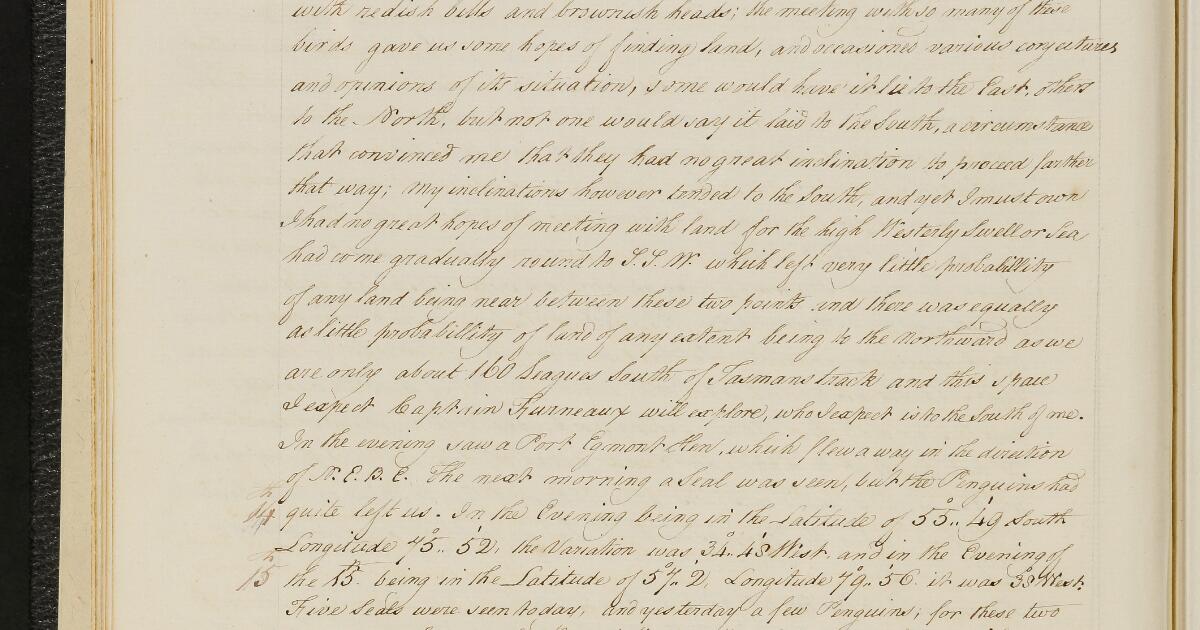 with redish bills and brownish heads; the meeting with so many of these
birds gave us some hopes of finding land, and occasioned various conjectures
and opinions of its situation, some would have it lie to the East, others
to the North, but not one would say it laid to the South, a circumstance
that convinced me that they had no great inclination to proceed farther
that way; my inclinations however tended to the South, and yet I must own
I had no great hopes of meeting with land for the high Westerly Swell or Sea
had come gradually round to S.S.W. which left very little probabillity
of any land being near between these two points and there was equally
as little probabillity of land of any extent being to the northward as we
are only about 160 Leagues South of Tasmans track and this space
I expect Captain Furneaux will explore, who I expect is to the South of me.
In the evening saw a Port Egmont Hen, which flew away in the direction
of N.E.B.E. The next morning a Seal was seen, but the Penguins had
14th quite left us. In the Evening being in the Latitude of 55°.. 49' South
Longitude 75°.. 52', the Variation was 34°.. 48' West. and in the Evening of
15th the 15th. being in the Latitude of 57°.. 2', Longitude 79°.. 56'. it was 38° West.
Five Seals were seen today, and yesterday a few Penguins; for these two